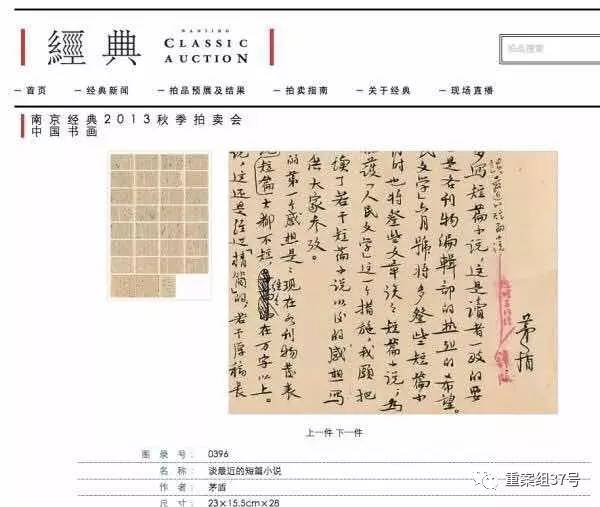 經典
NANJING
CLASSIC
AUCTION
拍品搜索
首页
经典新闻
拍品预展及结果
拍卖指南
关于经典
现场直播
南京经典2013秋季拍卖会
中国书画
談最近的短篇小说
茅盾
多写短篇小说，这是读者一致的要
是各刊物编辑部的热烈的希望。
民文学》六月號将多登些短篇小
同时也将登些文章谈谈短篇小说，为
拥護「人民文学」这一措施，我願把
读了若干短篇小说以后的感想写
供大家参攷。
的第一个感想是：现在各刊物发表
短篇，大都不短，往往在万字以上。
说，这还是经过「精简」的，若干原稿长
上一件 下一件
图录号： 0396
名称： 谈最近的短篇小说
作者： 茅盾
尺寸： 23×15.5cm×28
重案组37号